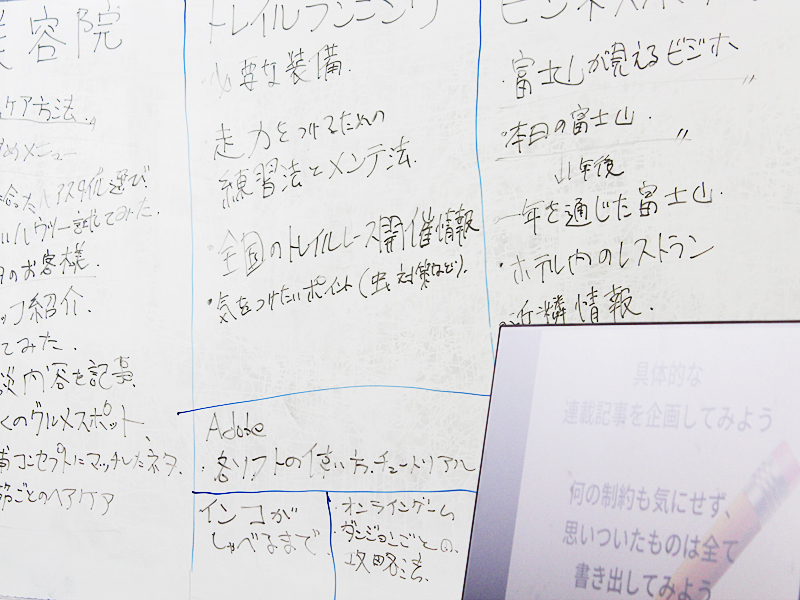 美容院
ケア方法
メニュー
のお客様
ッフ紹介.
てみた.
内容を記事.
くのグルメスポット、
コンセプトにマッチしたネタ.
節ごとのヘアケア
トレイルランニング
・必要な装備.
走力をつけるための
練習法とメンテ法.
・全国のトレイルレース開催情報
・気をつけたいポイント(虫対策など).
Adobe
・各ソフトの使い方.チュートリアル
インコが
しゃべるまで.
・オンラインゲーム
・ダンジョンごとの.
攻略法.
ビジネスホテル
・富士山が見えるビジホ
・本日の富士山. 〃
一年を通じた富士山.
・ホテル内のレストラン
・近隣情報.
具体的な
連載記事を企画してみよう
何の制約も気にせず、
思いついたものは全て
書き出してみよう